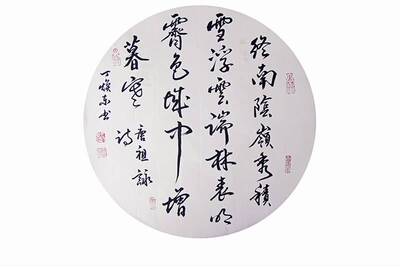 終南陰嶺秀積
雪浮雲端林表明
霽色城中增
暮寒
唐祖詠
詩
丁焕东书